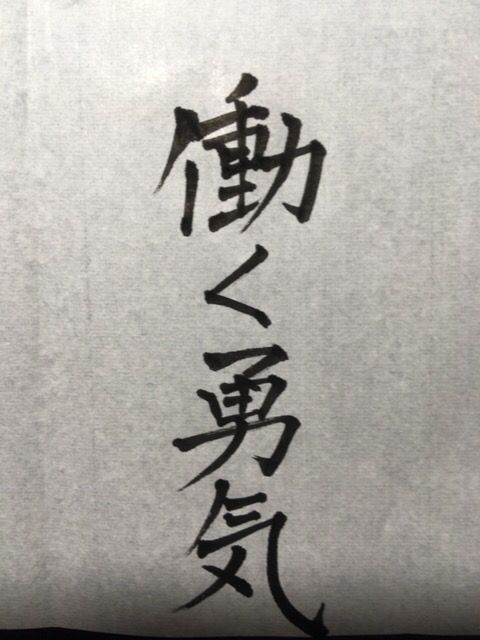 働く勇気